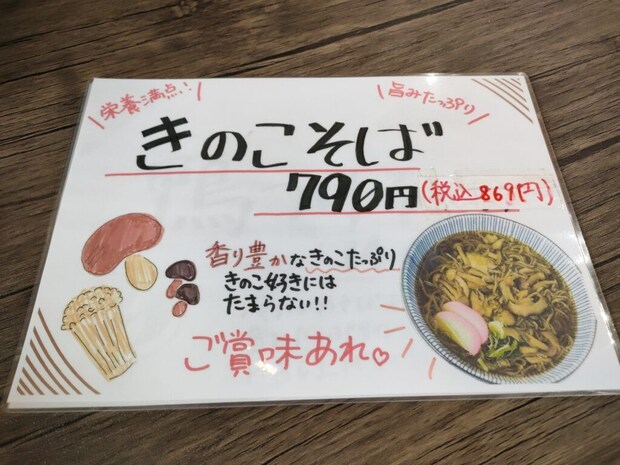 栄養満点!!
旨みたっぷり
きのこそば
790円(税込869円)
香り豊かなきのこたっぷり
きのこ好きには
たまらない!!
ご賞味あれ♡